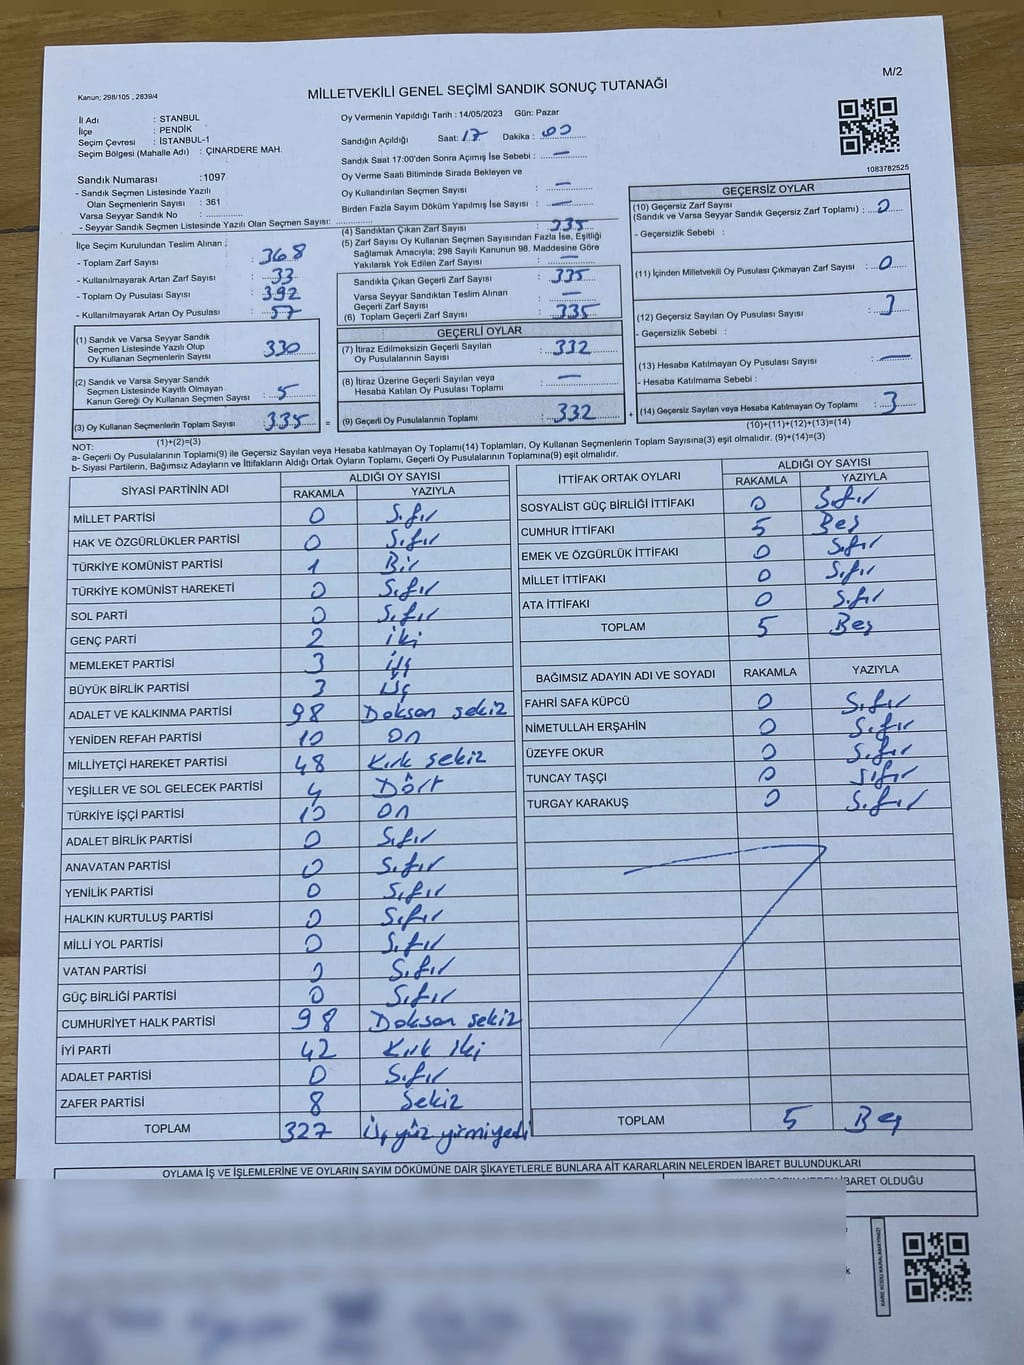 M/2
Kanun; 298/105 , 2839/4
MİLLETVEKİLİ GENEL SEÇİMİ SANDIK SONUÇ TUTANAĞI
İl Adı : STANBUL
İlçe : PENDİK
Seçim Çevresi : İSTANBUL-1
Seçim Bölgesi (Mahalle Adı) : ÇINARDERE MAH.
Sandık Numarası :1097
- Sandık Seçmen Listesinde Yazılı
Olan Seçmenlerin Sayısı : 361
Varsa Seyyar Sandık No :
- Seyyar Sandık Seçmen Listesinde Yazılı Olan Seçmen Sayısı:
Oy Vermenin Yapıldığı Tarih : 14/05/2023 Gün: Pazar
Sandığın Açıldığı Saat: 17 Dakika : 00
Sandık Saat 17:00'den Sonra Açımış İse Sebebi : —
Oy Verme Saati Bitiminde Sırada Bekleyen ve
Oy Kullandırılan Seçmen Sayısı : —
Birden Fazla Sayım Döküm Yapılmış İse Sayısı : —
1083782525
İlçe Seçim Kurulundan Teslim Alınan ;
- Toplam Zarf Sayısı : 368
- Kullanılmayarak Artan Zarf Sayısı : 33
- Toplam Oy Pusulası Sayısı : 392
- Kullanılmayarak Artan Oy Pusulası : 57
(1) Sandık ve Varsa Seyyar Sandık
Seçmen Listesinde Yazılı Olup
Oy Kullanan Seçmenlerin Sayısı : 330
(2) Sandık ve Varsa Seyyar Sandık
Seçmen Listesinde Kayıtlı Olmayan
Kanun Gereği Oy Kullanan Seçmen Sayısı : 5
(3) Oy Kullanan Seçmenlerin Toplam Sayısı : 335
(1)+(2)=(3)
(4) Sandıktan Çıkan Zarf Sayısı : 335
(5) Zarf Sayısı Oy Kullanan Seçmen Sayısından Fazla İse, Eşitliği
Sağlamak Amacıyla; 298 Sayılı Kanunun 98. Maddesine Göre
Yakılarak Yok Edilen Zarf Sayısı : —
Sandıkta Çıkan Geçerli Zarf Sayısı : 335
Varsa Seyyar Sandıktan Teslim Alınan
Geçerli Zarf Sayısı : —
(6) Toplam Geçerli Zarf Sayısı : 335
GEÇERLİ OYLAR
(7) İtiraz Edilmeksizin Geçerli Sayılan
Oy Pusulalarının Sayısı : 332
(8) İtiraz Üzerine Geçerli Sayılan veya
Hesaba Katılan Oy Pusulası Toplamı : —
= (9) Geçerli Oy Pusulalarının Toplamı : 332
GEÇERSİZ OYLAR
(10) Geçersiz Zarf Sayısı
(Sandık ve Varsa Seyyar Sandık Geçersiz Zarf Toplamı) : 0
- Geçersizlik Sebebi :
(11) İçinden Milletvekili Oy Pusulası Çıkmayan Zarf Sayısı : 0
(12) Geçersiz Sayılan Oy Pusulası Sayısı : 3
- Geçersizlik Sebebi :
(13) Hesaba Katılmayan Oy Pusulası Sayısı : —
- Hesaba Katılmama Sebebi :
+ (14) Geçersiz Sayılan veya Hesaba Katılmayan Oy Toplamı : 3
(10)+(11)+(12)+(13)=(14)
NOT:
a- Geçerli Oy Pusulalarının Toplamı(9) ile Geçersiz Sayılan veya Hesaba katılmayan Oy Toplamı(14) Toplamları, Oy Kullanan Seçmenlerin Toplam Sayısına(3) eşit olmalıdır. (9)+(14)=(3)
b- Siyasi Partilerin, Bağımsız Adayların ve İttifakların Aldığı Ortak Oyların Toplamı, Geçerli Oy Pusulalarının Toplamına(9) eşit olmalıdır.
SİYASİ PARTİNİN ADI ALDIĞI OY SAYISI
RAKAMLA YAZIYLA
MİLLET PARTİSİ 0 Sıfır
HAK VE ÖZGÜRLÜKLER PARTİSİ 0 Sıfır
TÜRKİYE KOMÜNİST PARTİSİ 1 Bir
TÜRKİYE KOMÜNİST HAREKETİ 0 Sıfır
SOL PARTİ 0 Sıfır
GENÇ PARTİ 2 iki
MEMLEKET PARTİSİ 3 üç
BÜYÜK BİRLİK PARTİSİ 3 üç
ADALET VE KALKINMA PARTİSİ 98 Doksan sekiz
YENİDEN REFAH PARTİSİ 10 on
MİLLİYETÇİ HAREKET PARTİSİ 48 Kırk sekiz
YEŞİLLER VE SOL GELECEK PARTİSİ 4 Dört
TÜRKİYE İŞÇİ PARTİSİ 10 on
ADALET BİRLİK PARTİSİ 0 Sıfır
ANAVATAN PARTİSİ 0 Sıfır
YENİLİK PARTİSİ 0 Sıfır
HALKIN KURTULUŞ PARTİSİ 0 Sıfır
MİLLİ YOL PARTİSİ 0 Sıfır
VATAN PARTİSİ 0 Sıfır
GÜÇ BİRLİĞİ PARTİSİ 0 Sıfır
CUMHURİYET HALK PARTİSİ 98 Doksan sekiz
İYİ PARTİ 42 Kırk iki
ADALET PARTİSİ 0 Sıfır
ZAFER PARTİSİ 8 Sekiz
TOPLAM 327 Üç yüz yirmiyedi
İTTİFAK ORTAK OYLARI ALDIĞI OY SAYISI
RAKAMLA YAZIYLA
SOSYALİST GÜÇ BİRLİĞİ İTTİFAKI 0 Sıfır
CUMHUR İTTİFAKI 5 Beş
EMEK VE ÖZGÜRLÜK İTTİFAKI 0 Sıfır
MİLLET İTTİFAKI 0 Sıfır
ATA İTTİFAKI 0 Sıfır
TOPLAM 5 Beş
BAĞIMSIZ ADAYIN ADI VE SOYADI RAKAMLA YAZIYLA
FAHRİ SAFA KÜPCÜ 0 Sıfır
NİMETULLAH ERŞAHİN 0 Sıfır
ÜZEYFE OKUR 0 Sıfır
TUNCAY TAŞÇI 0 Sıfır
TURGAY KARAKUŞ 0 Sıfır
TOPLAM 5 Beş
OYLAMA İŞ VE İŞLEMLERİNE VE OYLARIN SAYIM DÖKÜMÜNE DAİR ŞİKAYETLERLE BUNLARA AİT KARARLARIN NELERDEN İBARET BULUNDUKLARI
İBARET OLDUĞU